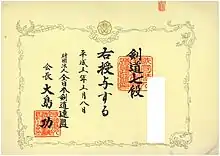 剣道七段
右授与する
平成三年三月八日
財団法人全日本剣道連盟
会長 大島 功